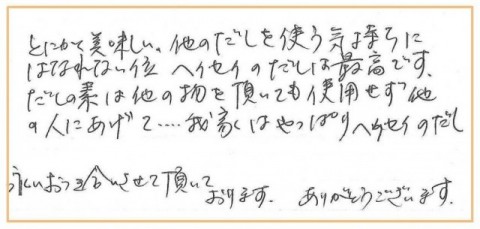 とにかく美味しい。他のだしを使う気持ちに
はなれない位 ヘイセイのだしは最高です。
だしの素は他の物を頂いても使用せず他
の人にあげて‥‥我家はやっぱりヘイセイのだし
永いおつき合いさせて頂いて
おります。 ありがとうございます。